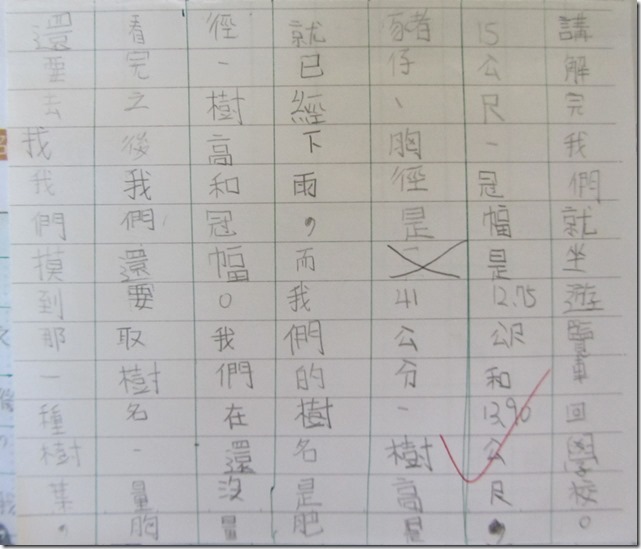 還要去找我們摸到那一種樹葉，
看完之後我們還要取樹名、量胸
徑、樹高和冠幅。我們在還沒量
就已經下雨，而我們的樹名是肥
豬仔、胸徑是41公分、樹高是
15公尺、冠幅是12.75公尺和13.90公尺，
講解完我們就坐遊覽車回學校。